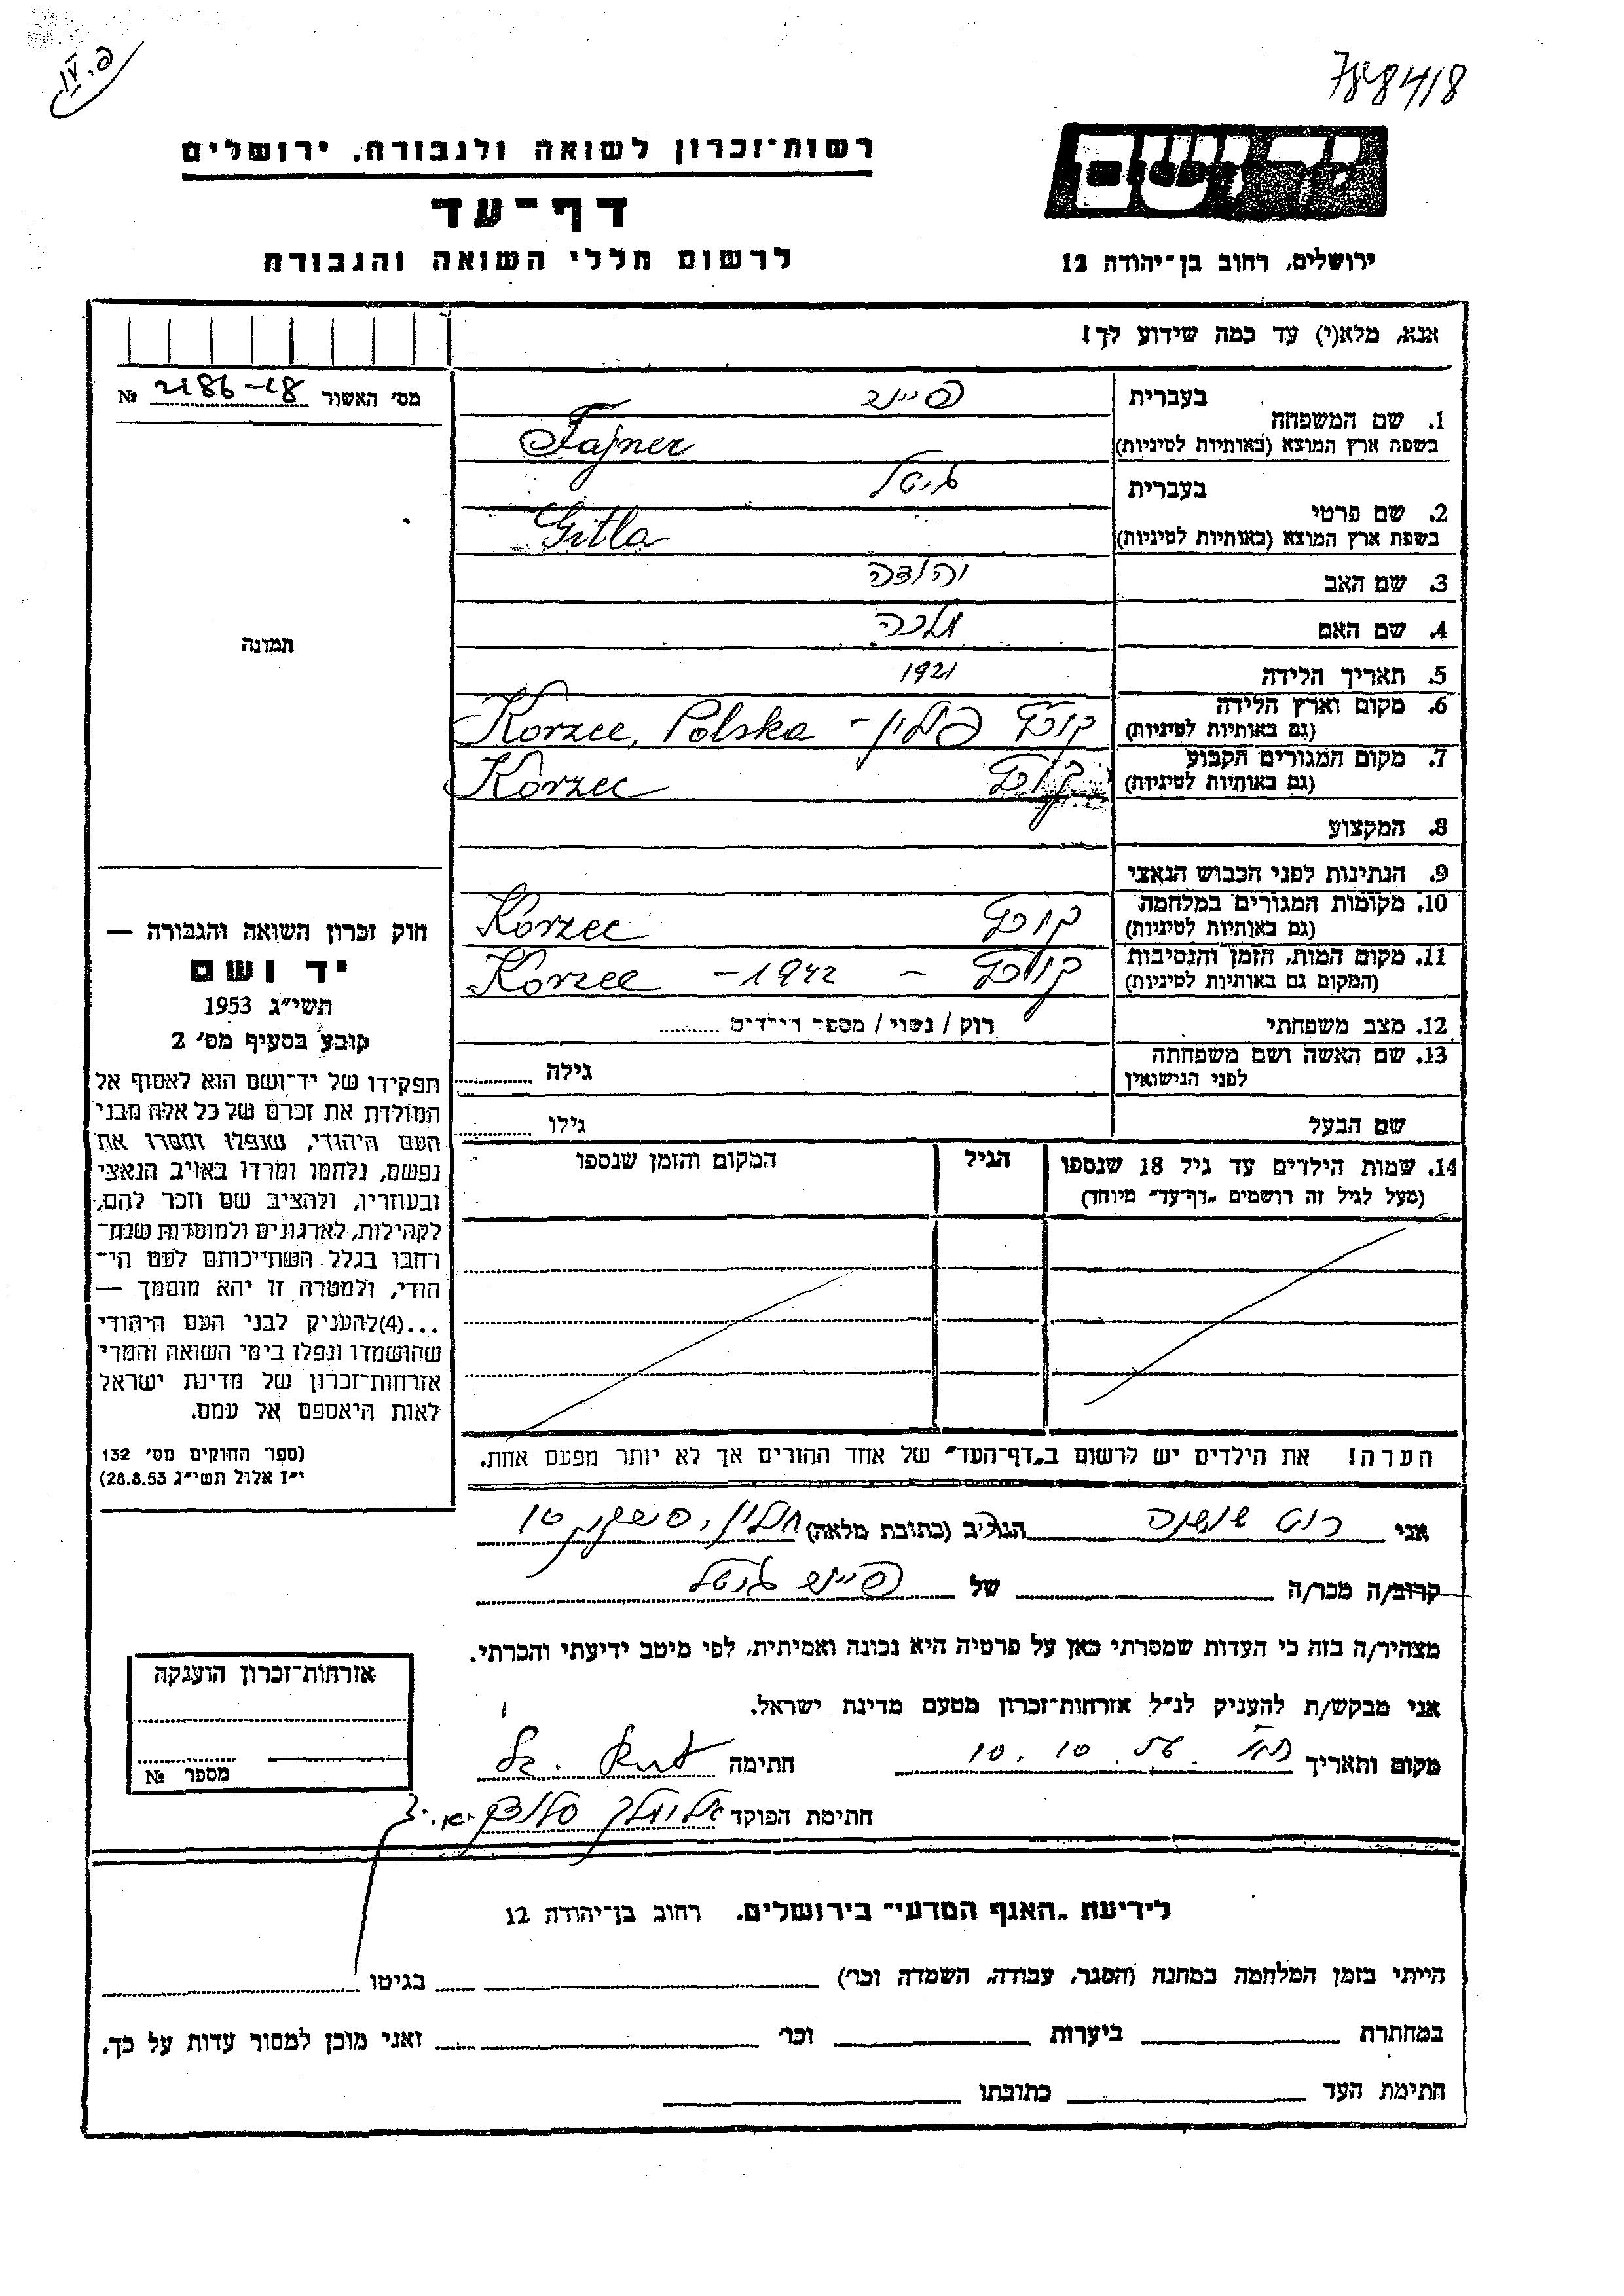 פ. IV
788418
רשות־זכרון לשואה ולגבורה, ירושלים
דף־עד
לרשום חללי השואה והגבורה
יד ושם
ירושלים, רחוב בן־יהודה 12
אנא, מלא(י) עד כמה שידוע לך!
מס' האשור 2186-18 №
תמונה
1. שם המשפחה
בעברית פיינר
בשפת ארץ המוצא (באותיות לטיניות) Fajner
2. שם פרטי
בעברית גיטל
בשפת ארץ המוצא (באותיות לטיניות) Gitla
3. שם האב יהודה
4. שם האם מלכה
5. תאריך הלידה 1921
6. מקום וארץ הלידה
(גם באותיות לטיניות) קורץ פולין - Korzec, Polska
7. מקום המגורים הקבוע
(גם באותיות לטיניות) קורץ Korzec
8. המקצוע
9. הנתינות לפני הכבוש הנאצי
10. מקומות המגורים במלחמה
(גם באותיות לטיניות) קורץ Korzec
11. מקום המות, הזמן והנסיבות
(המקום גם באותיות לטיניות) קורץ - 1942 - Korzec
12. מצב משפחתי רוק / נשוי / מספר הילדים
13. שם האשה ושם משפחתה
לפני הנישואין גילה
שם הבעל גילו
14. שמות הילדים עד גיל 18 שנספו
(מעל לגיל זה רושמים „דף־עד" מיוחד)
הגיל
המקום והזמן שנספו
הערה! את הילדים יש לרשום ב„דף־העד" של אחד ההורים אך לא יותר מפעם אחת.
חוק זכרון השואה והגבורה —
יד ושם
תשי"ג 1953
קובע בסעיף מס' 2
תפקידו של יד־ושם הוא לאסוף אל
המולדת את זכרם של כל אלה מבני
העם היהודי, שנפלו ומסרו את
נפשם, נלחמו ומרדו באויב הנאצי
ובעוזריו, ולהציב שם וזכר להם,
לקהילות, לארגונים ולמוסדות שנח־
רחבו בגלל השתייכותם לעם הי־
הודי, ולמטרה זו יהא מוסמך —
...(4)להעניק לבני העם היהודי
שהושמדו ונפלו בימי השואה והמרי
אזרחות־זכרון של מדינת ישראל
לאות היאספם אל עמם.
(ספר החוקים מס' 132
י"ז אלול תשי"ג 28.8.53)
אני רוט שושנה הגר/ב (כתובת מלאה) חולון,
קרוב/ה מכר/ה של פיינר גיטל
מצהיר/ה בזה כי העדות שמסרתי כאן על פרטיה היא נכונה ואמיתית, לפי מיטב ידיעתי והכרתי.
אני מבקש/ת להעניק לנ"ל אזרחות־זכרון מטעם מדינת ישראל.
מקום ותאריך חתימה
חתימת הפוקד
אזרחות־זכרון הוענקה
מספר №
לידיעת „האגף המדעי" בירושלים. רחוב בן־יהודה 12
הייתי בזמן המלחמה במחנה (הסגר, עבודה, השמדה וכו') בגיטו
במחתרת ביערות וכו' ואני מוכן למסור עדות על כך.
חתימת העד כתובתו